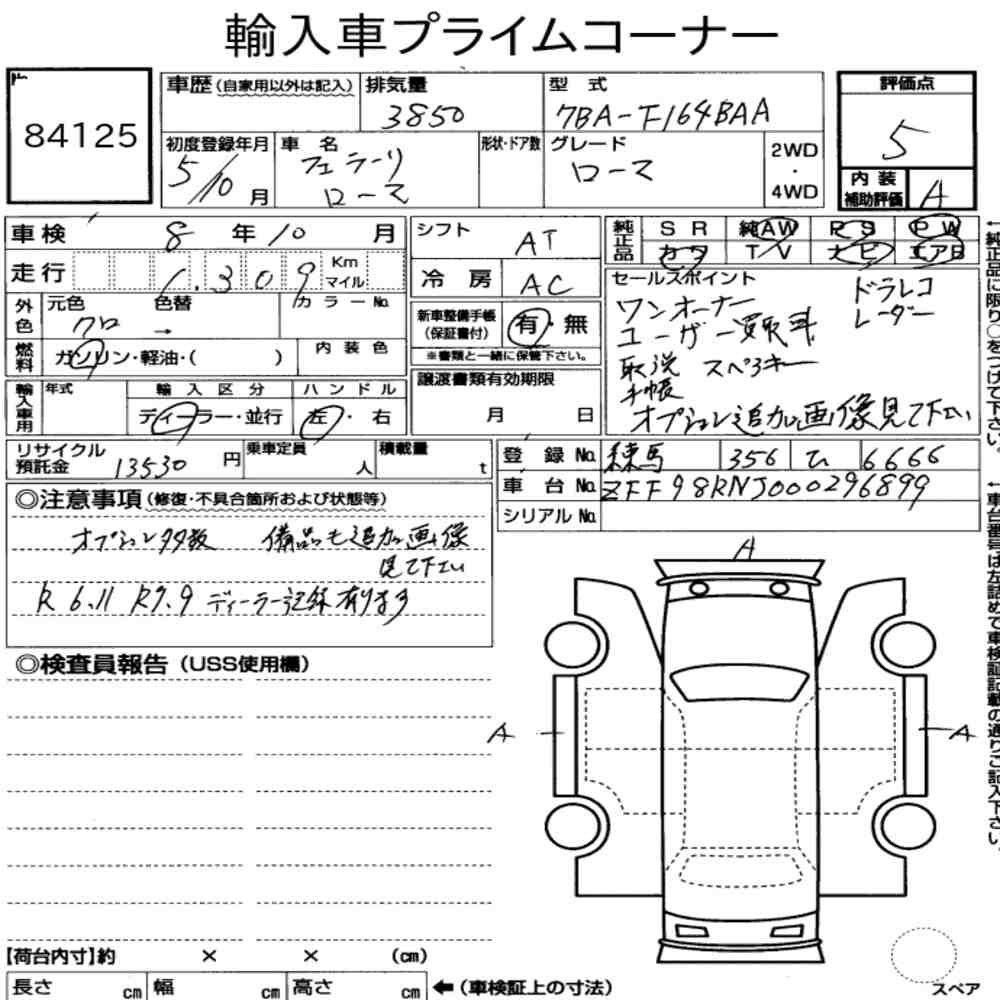 輸入車プライムコーナー
84125
車歴(自家用以外は記入) 排気量 型式
3850 7BA-F164BAA
初度登録年月 車名 形状・ドア数 グレード
5/10月 フェラーリ ローマ ローマ
2WD・4WD
評価点
5
内装補助評価 A
車検 8年10月
走行 1.309 Km マイル
外色 元色 色替 カラーNo.
クロ →
燃料 ガソリン・軽油・( ) 内装色
輸入車用 年式 輸入区分 ハンドル
ディーラー・並行 左・右
シフト AT
冷房 AC
新車整備手帳(保証書付) 有・無
※書類と一緒に保管下さい。
譲渡書類有効期限
月 日
純正品 SR 純AW PS PW
カワ TV ナビ エアB
セールスポイント
ワンオーナー ドラレコ
ユーザー買取車 レーダー
取説 スペアキー
手帳
オプション追加画像見て下さい
←純正品に限り○をつけて下さい。
リサイクル預託金 13530円 乗車定員 人 積載量 t
登録No. 練馬 356 ひ 6666
車台No. ZFF98RNJ000296899
シリアルNo.
←車台番号は左詰めで車検証記載の通りご記入下さい。
◎注意事項(修復・不具合箇所および状態等)
オプション多数 備品も追加画像
見て下さい
R6.11 R7.9 ディーラー記録有ります
◎検査員報告(USS使用欄)
A
A
A
【荷台内寸】約 × × (cm)
長さ cm 幅 cm 高さ cm ←(車検証上の寸法)
スペア